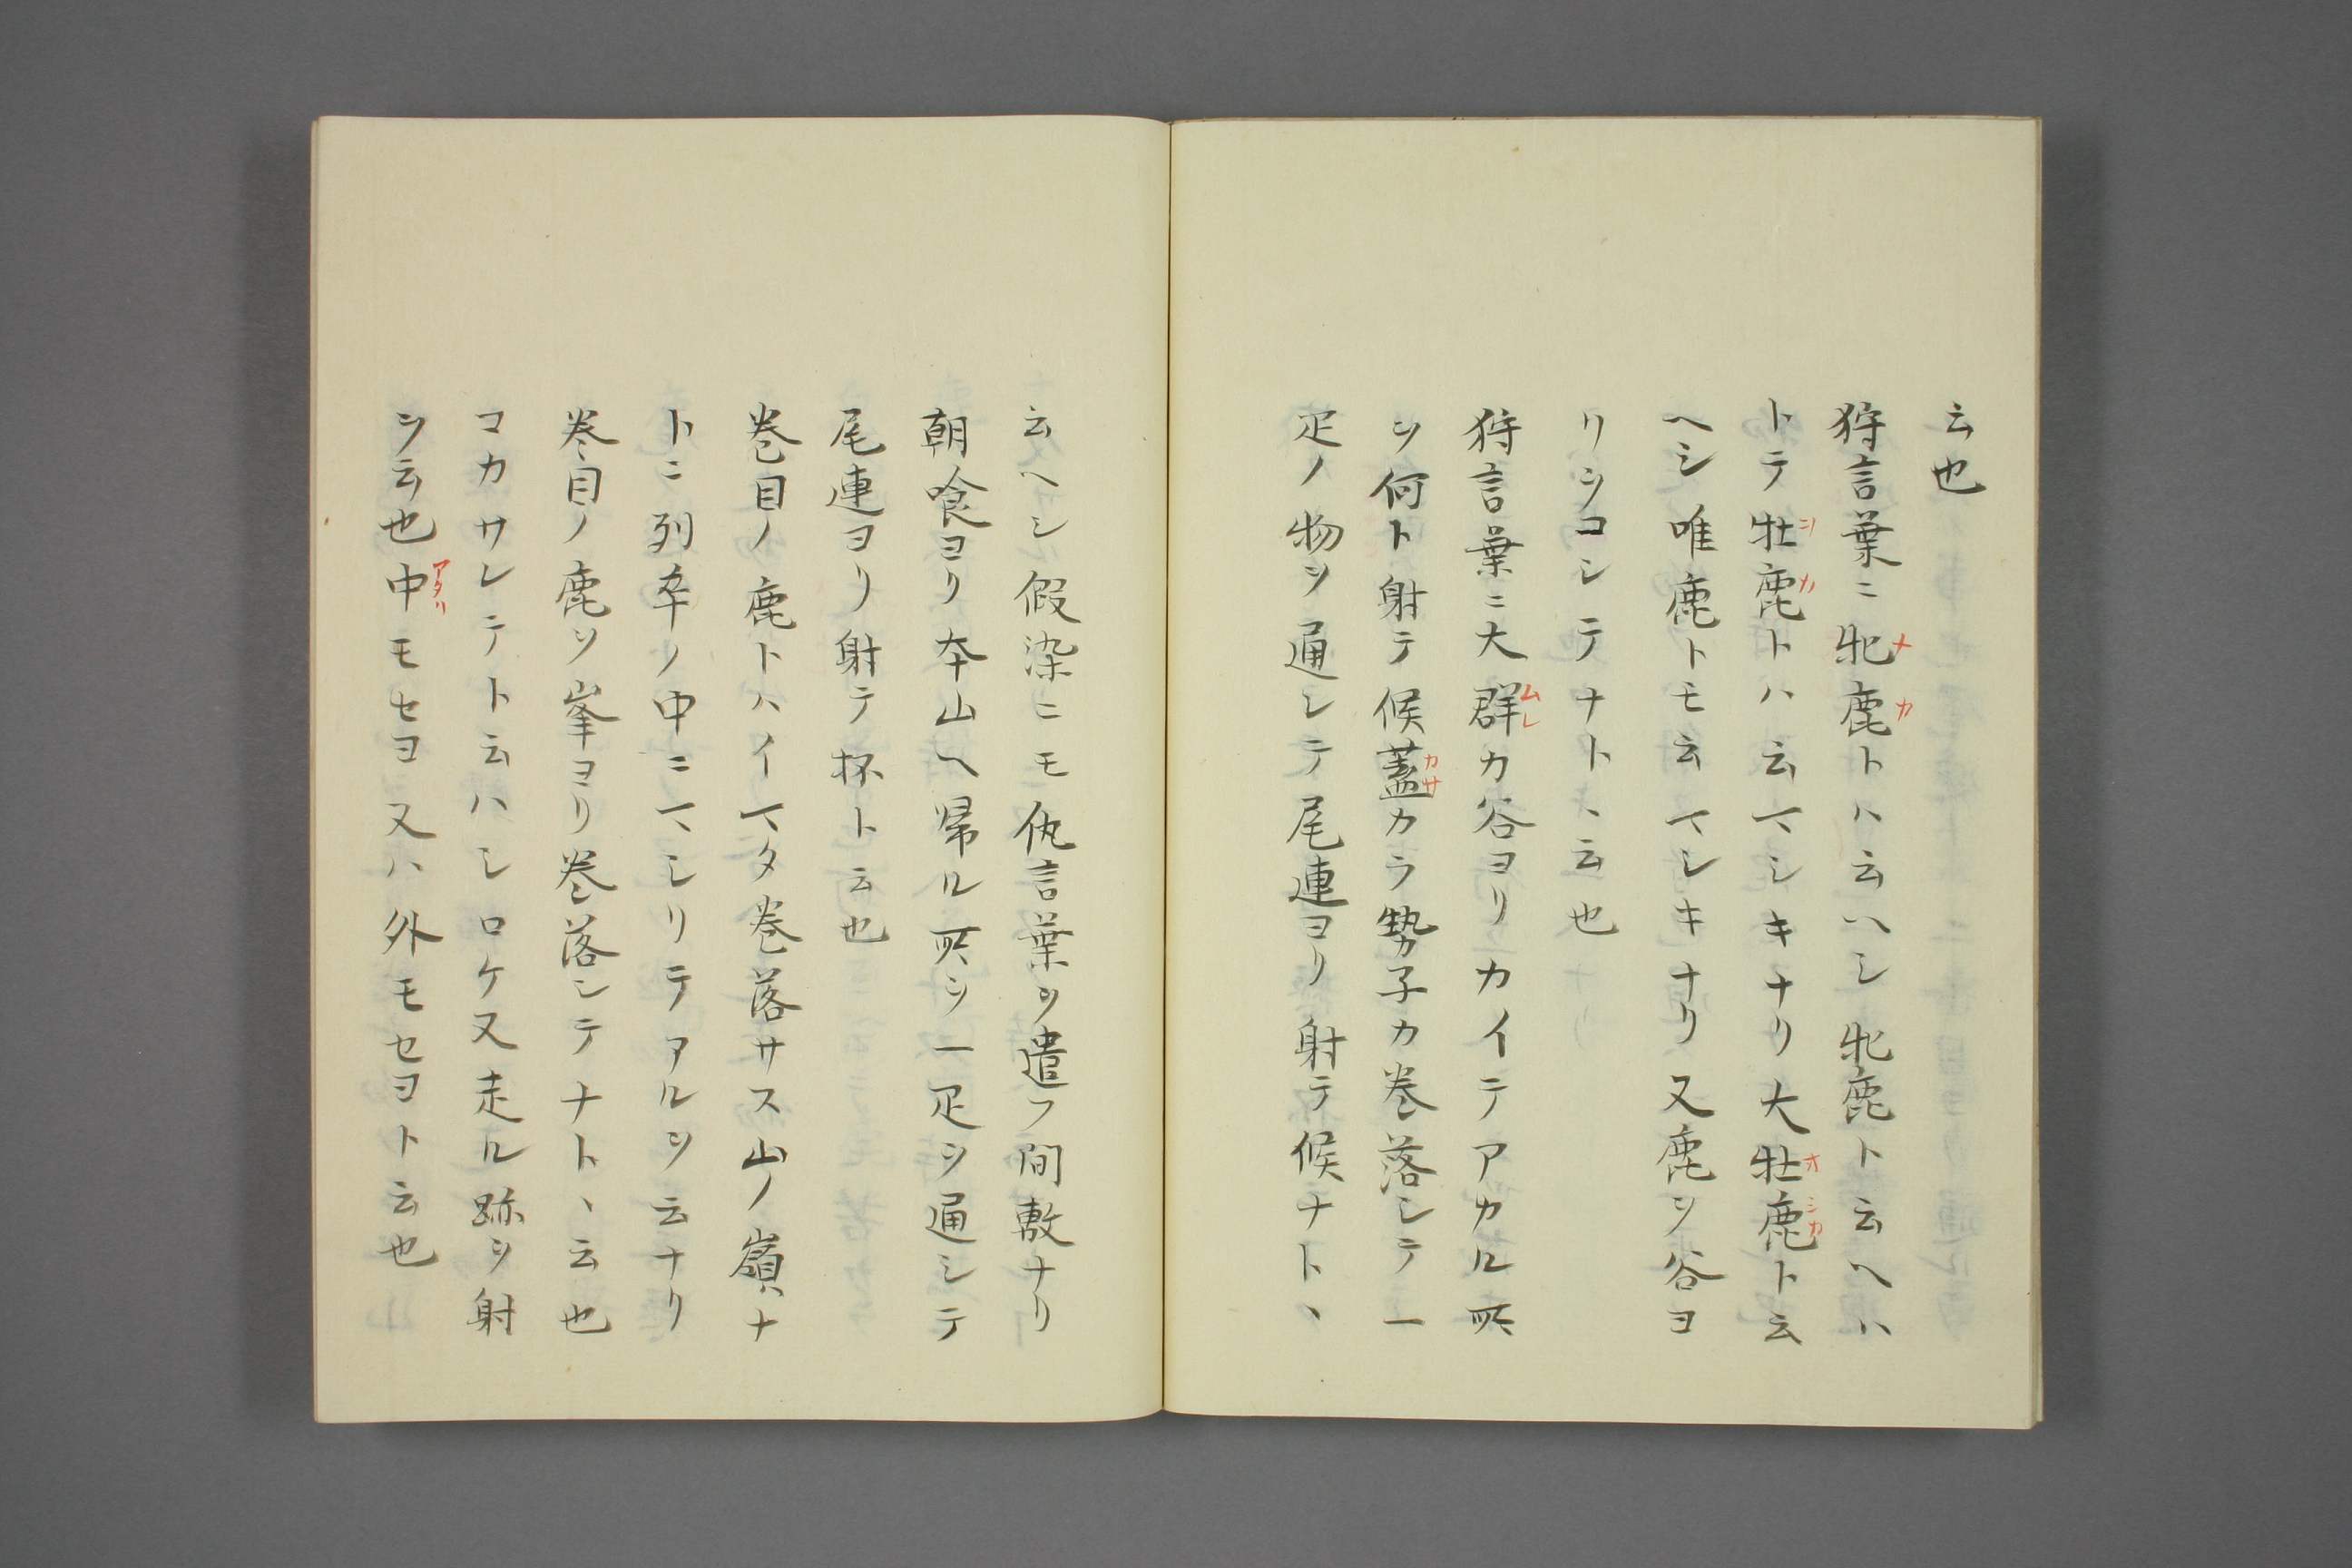 云也
狩言葉ニ牝鹿トハ云ハシ牝鹿ト云ヘハ
トテ牡鹿トハ云マシキナリ大牡鹿ト云
ヘシ唯鹿トモ云マシキナリ又鹿ヲ谷ヨ
リヲコシテナト、云也
狩言葉ニ大群カ谷ヨリカイテアカル所
ヲ何ト射テ候蓋カラ勢子カ巻落シテ一
疋ノ物ヲ通シテ尾連ヨリ射テ候ナト、
云ヘシ假染ニモ仇言葉ヲ遣フ間敷ナリ
朝喰ヨリ本山ヘ帰ル所ヲ一疋ヲ通シテ
尾連ヨリ射テ抔ト云也
巻目ノ鹿トハイマタ巻落サス山ノ嶺ナ
トニ列卒ノ中ニマシリテアルヲ云ナリ
巻目ノ鹿ヲ峯ヨリ巻落シテナト、云也
コカサレテト云ハシロケ又走ル跡ヲ射
ヲ云也中モセヨ又ハ外モセヨト云也
メカ
シカ
オシカ
ムレ
カサ
アタリ